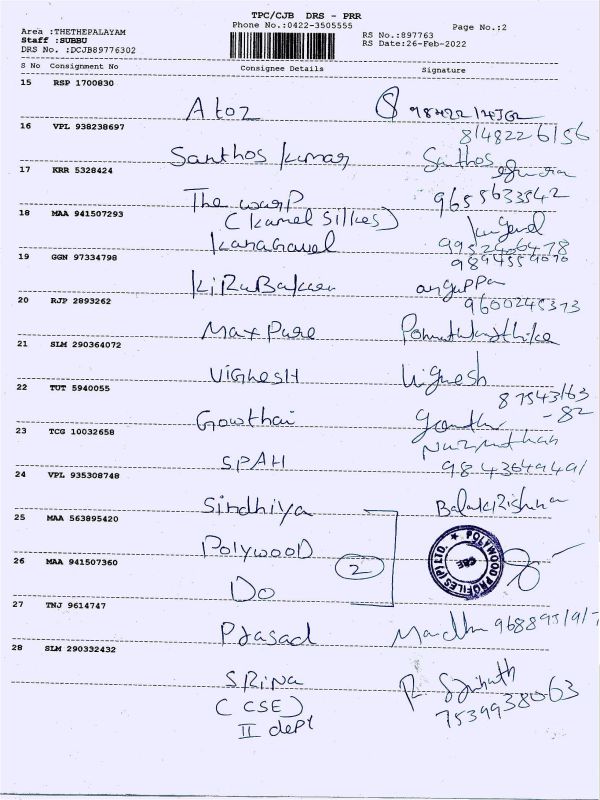 TPC/CJB DRS - PRR
Phone No.:0422-3505555
Page No.:2
Area :THETHEPALAYAM
Staff :SUBBU
DRS No. :DCJB89776302
RS No.:897763
RS Date:26-Feb-2022
S No Consignment No Consignee Details Signature
15 RSP 1700830
A to z
16 VPL 938238697
8148226156
Santhos kumar Santhos
17 KRR 5328424
The warp 9655633542
18 MAA 941507293
(kamel silkes)
Kanagavel
9952406478
19 GGN 97334798
KiRuBakaran anguppan
9600245373
20 RJP 2893262
Max Pure
21 SLM 290364072
VIGHESH Vignesh
22 TUT 5940055
87543163
-82
Gowthai
23 TCG 10032658
SPAH 9843649491
24 VPL 935308748
Sindhiya Balakrishna
25 MAA 563895420
Polywood
POLYWOOD PROFILES (P) LTD. ★ CBE
26 MAA 941507360
2
Do
27 TNJ 9614747
Prasad Mandhu
28 SLM 290332432
SRiNa R. Srinath
(CSE) 7539938063
II dept